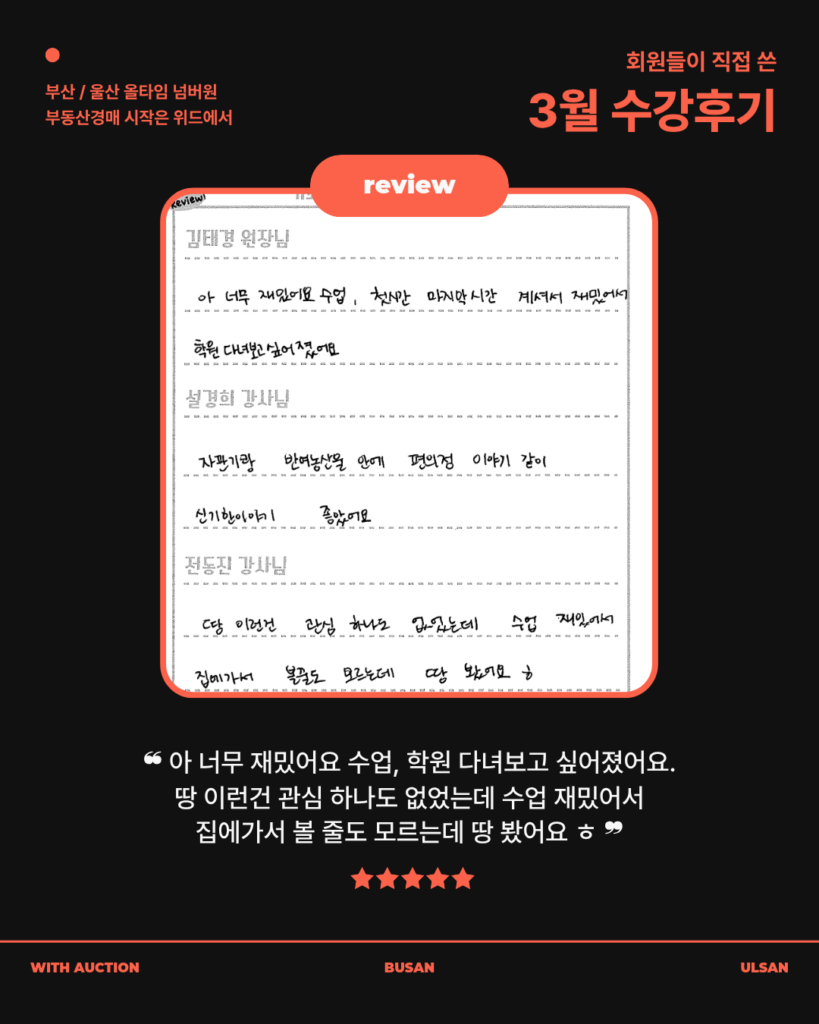 부산 / 울산 올타임 넘버원
부동산경매 시작은 위드에서
회원들이 직접 쓴
3월 수강후기
review
Review!
김태경 원장님
아 너무 재밌어요 수업, 첫시간 마지막시간 계셔서 재밌어서
학원 다녀보고싶어졌어요
설경희 강사님
자판기랑 반려농산물 안에 편의점 이야기 같이
신기한이야기 좋았어요
전동진 강사님
땅 이런건 관심 하나도 없었는데 수업 재밌어서
집에가서 볼줄도 모르는데 땅 봤어요 ㅎ
❝ 아 너무 재밌어요 수업, 학원 다녀보고 싶어졌어요.
땅 이런건 관심 하나도 없었는데 수업 재밌어서
집에가서 볼 줄도 모르는데 땅 봤어요 ㅎ ❞
WITH AUCTION
BUSAN
ULSAN